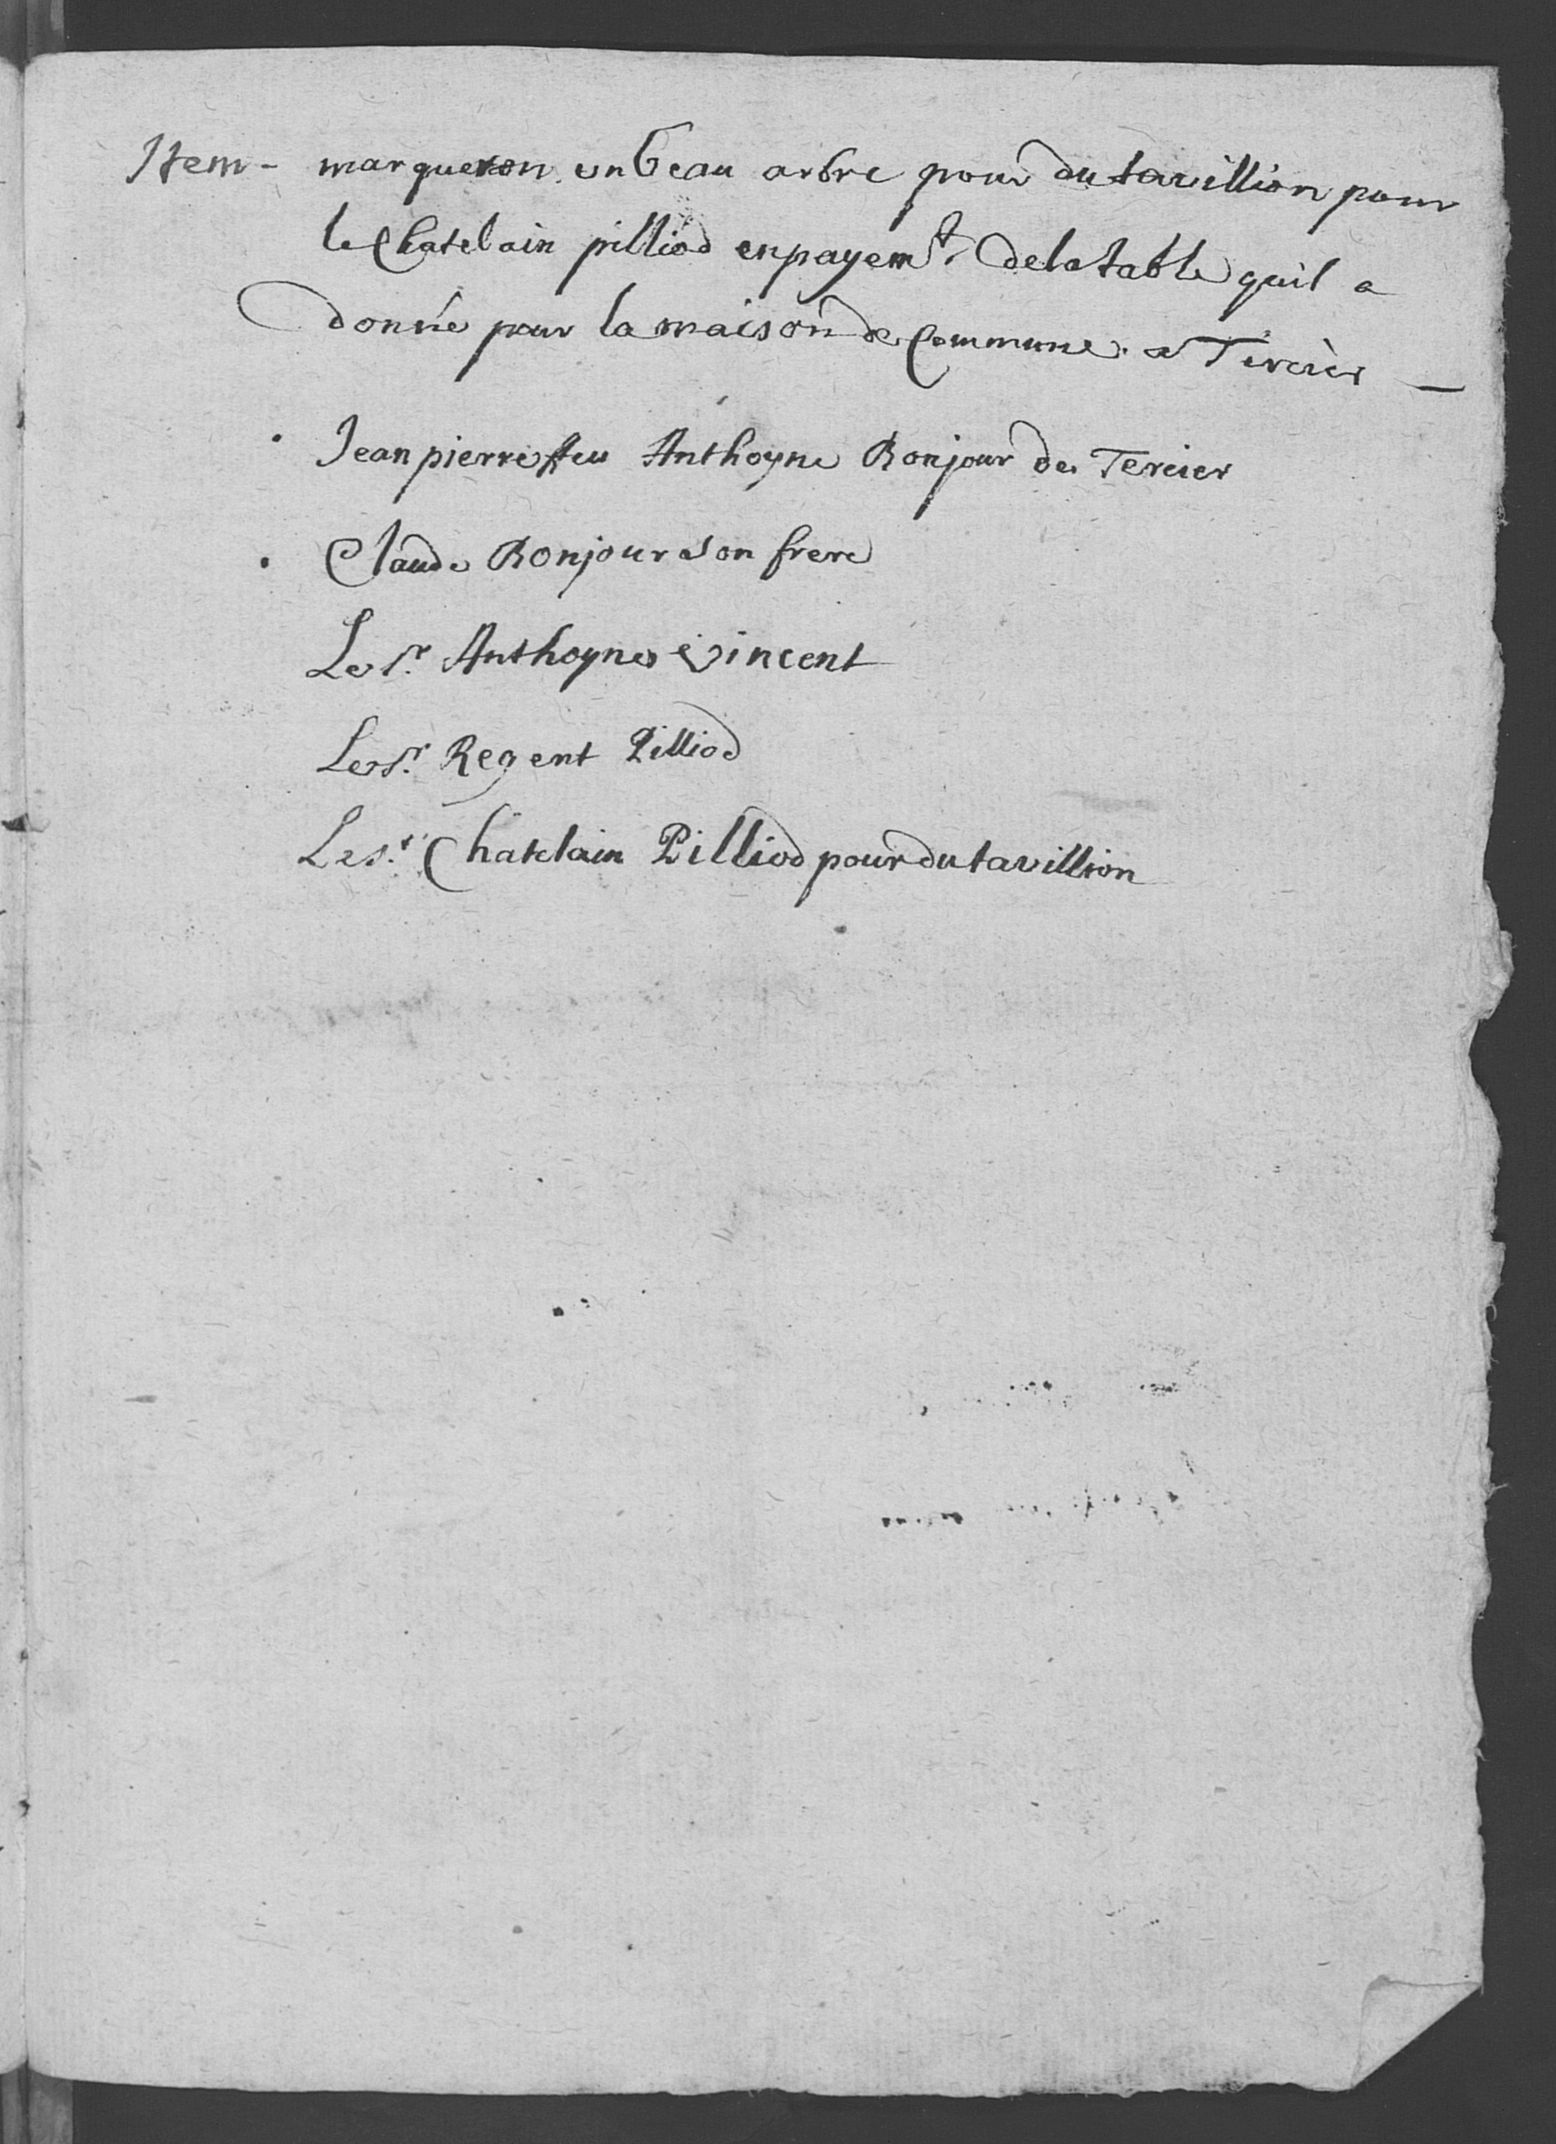 Item - marqueron un beau arbre pour du tavillion pour
le Chatelain pilliod en payemt. de la table quil a
donné pour la maison de Commune a Tercier —
Jean pierre ffeu Anthoyne Bonjour de Tercier
Claude Bonjour son frere
Le Sr. Anthoyne Vincent
Le Sr. Regent Pilliod
Le Sr. Chatelain Pilliod pour du tavillion